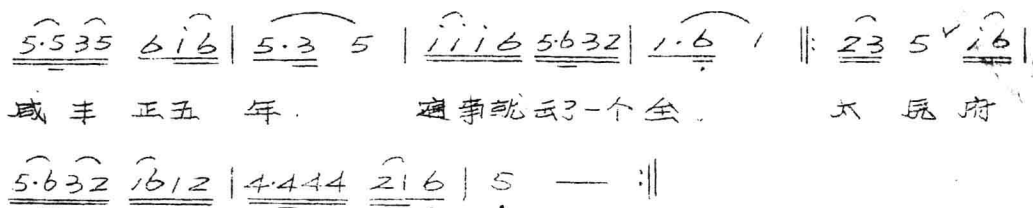 5·535 6i6 | 5·3 5 | iii6 5·632 | 1·6 1 ‖: 23 5 ˅ i6 |
咸丰 正五 年. 事就云了一个全. 太 府
5·632 i612 | 4·444 2i6 | 5 — :‖